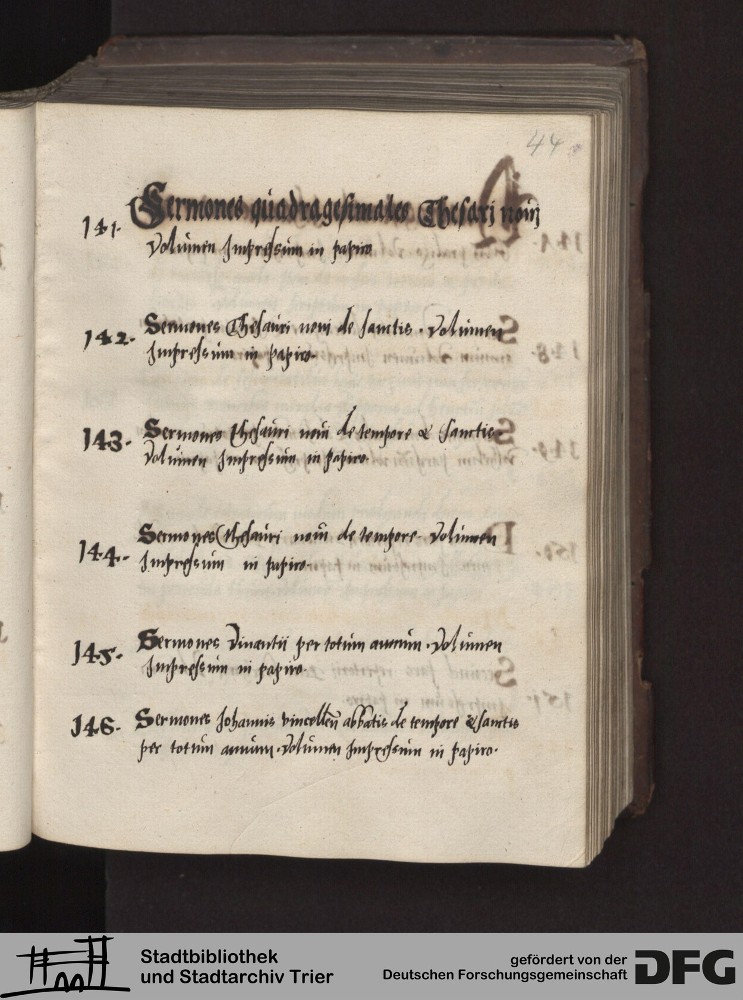 44
141. Sermones quadragesimales Thesari noui
Volumen Impressum in papiro
142. Sermones Thesauri noui de sanctis. Volumen
Impressum in papiro.
143. Sermones Thesauri noui de tempore & Sanctis
Volumen Impressum in papiro.
144. Sermones Thesauri noui de tempore. Volumen
Impressum in papiro.
145. Sermones Vinantii per totum annum. Volumen
Impressum in papiro.
146. Sermones Johannis vincellen abbatis de tempore & sanctis
per totum annum. Volumen Impressum in papiro.
Stadtbibliothek
und Stadtarchiv Trier
gefördert von der
Deutschen Forschungsgemeinschaft
DFG